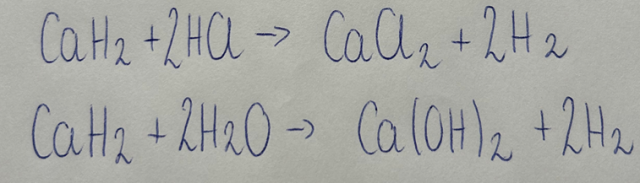 CaH₂ + 2HCl → CaCl₂ + 2H₂
CaH₂ + 2H₂O → Ca(OH)₂ + 2H₂